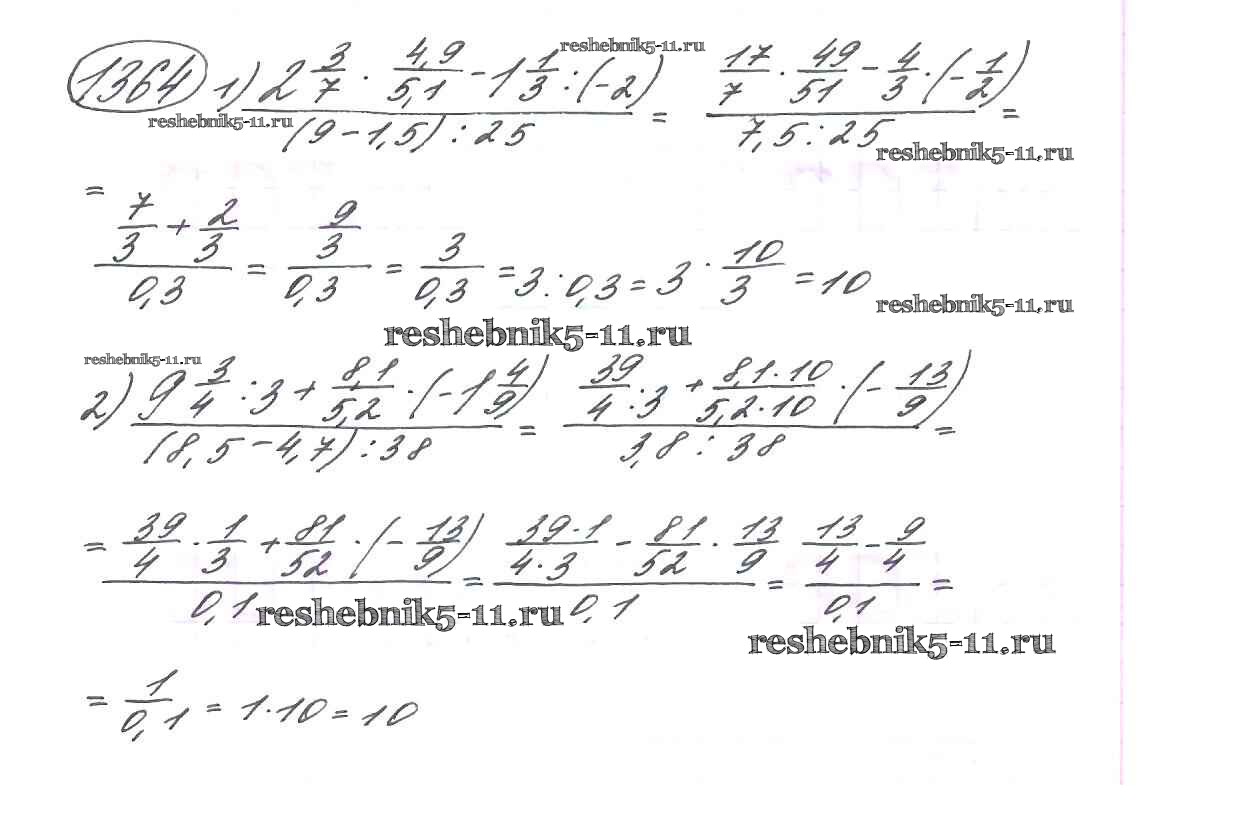 reshebnik5-11.ru
1364 1) (2 3/7 · 4,9/5,1 - 1 1/3 : (-2)) / ((9 - 1,5) : 25) = (17/7 · 49/51 - 4/3 · (-1/2)) / (7,5 : 25) =
reshebnik5-11.ru
reshebnik5-11.ru
= (7/3 + 2/3) / 0,3 = (9/3) / 0,3 = 3 / 0,3 = 3 : 0,3 = 3 · 10/3 = 10
reshebnik5-11.ru
reshebnik5-11.ru
reshebnik5-11.ru
2) (9 3/4 : 3 + 8,1/5,2 · (-1 4/9)) / ((8,5 - 4,7) : 38) = (39/4 : 3 + 8,1·10/5,2·10 · (-13/9)) / (3,8 : 38) =
= (39/4 · 1/3 + 81/52 · (-13/9)) / 0,1 = (39·1/4·3 - 81/52 · 13/9) / 0,1 = (13/4 - 9/4) / 0,1 =
reshebnik5-11.ru
reshebnik5-11.ru
= 1 / 0,1 = 1·10 = 10